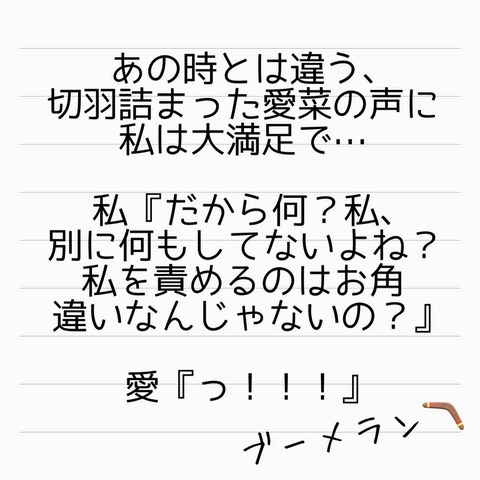 あの時とは違う、
切羽詰まった愛菜の声に
私は大満足で…
私『だから何？私、
別に何もしてないよね？
私を責めるのはお角
違いなんじゃないの？』
愛『っ！！！』
ブーメラン